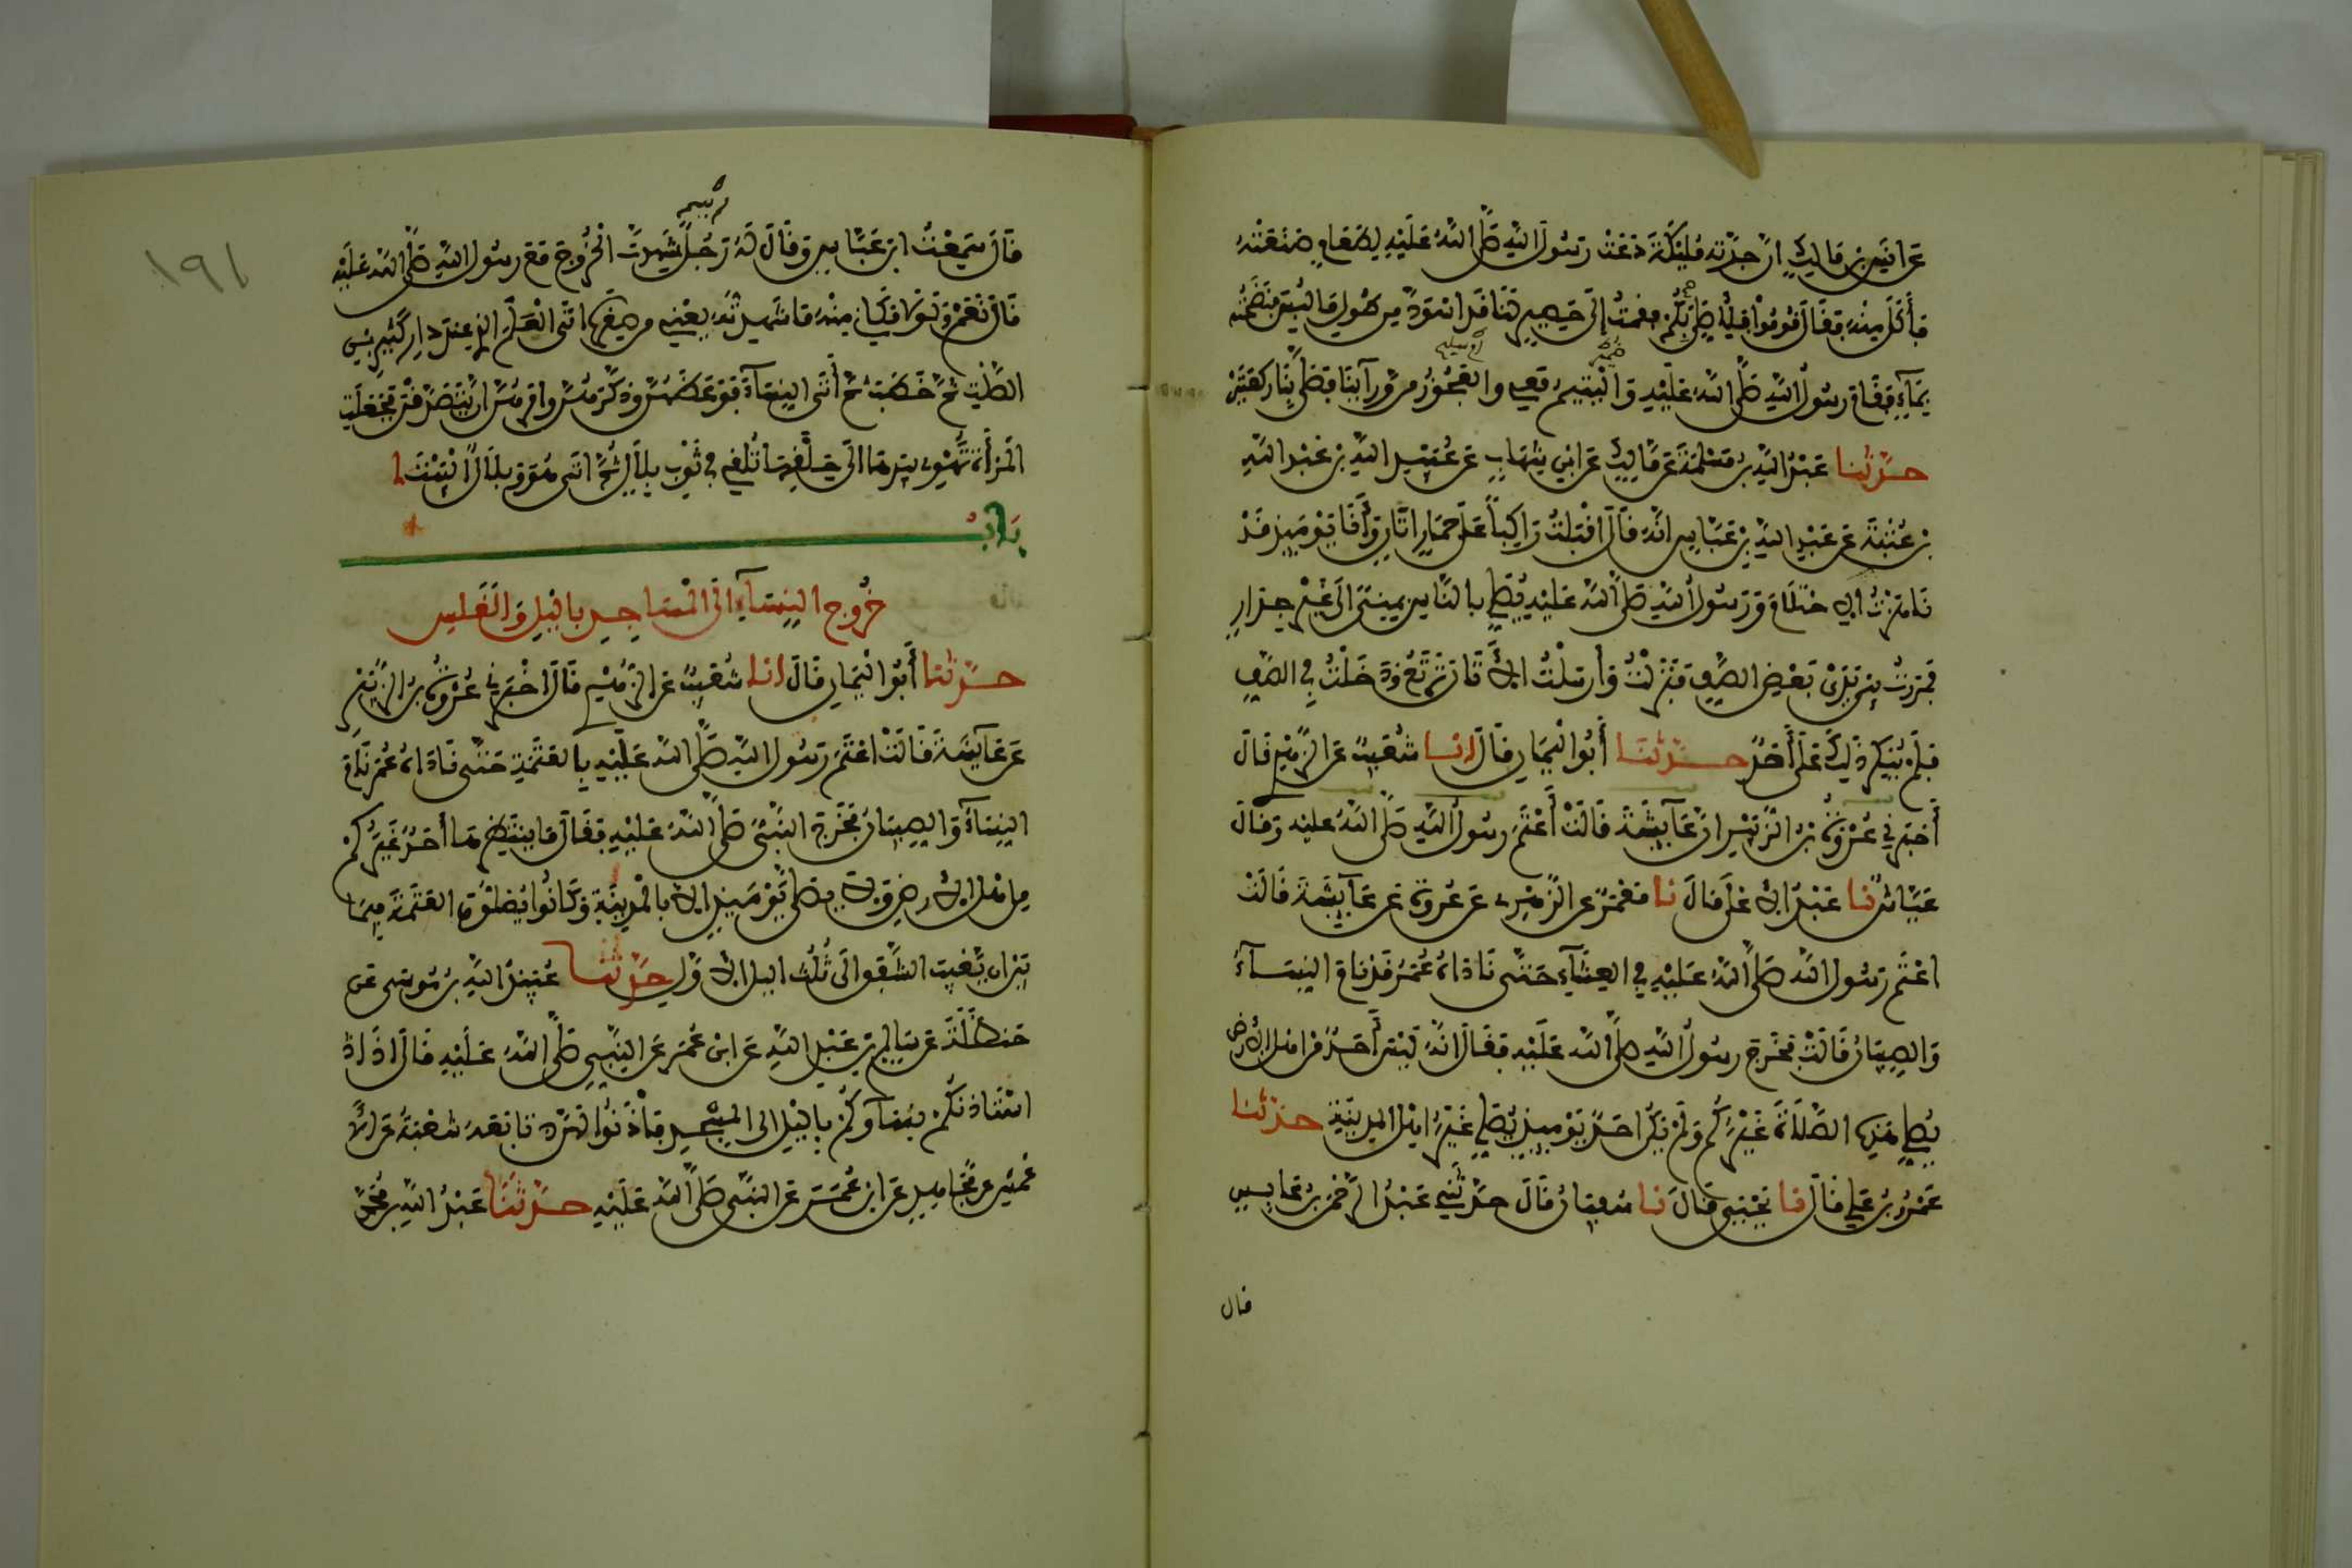 عن انس بن مالك ان جدته مليكة دعت رسول الله صلى الله عليه لطعام صنعته
فأكل منه فقال قوموا فلأصلي بكم فقمت إلى حصير لنا قد اسود من طول ما لبس فنضحته
بماء فقام رسول الله صلى الله عليه واليتيم معي والعجوز من ورائنا فصلى بنا ركعتين
حدثنا عبد الله بن مسلمة عن مالك عن ابن شهاب عن عبيد الله بن عبد الله
بن عتبة عن عبد الله بن عباس انه قال اقبلت راكبا على حمار اتان وأنا يومئذ قد
ناهزت الاحتلام ورسول الله صلى الله عليه يصلي بالناس بمنى الى غير جدار
فمررت بين يدي بعض الصف فنزلت وأرسلت الأتان ترتع ودخلت في الصف
فلم ينكر ذلك علي أحد حدثنا أبو اليمان قال انا شعيب عن الزهري قال
أخبرني عروة بن الزبير ان عائشة قالت أعتم رسول الله صلى الله عليه وقال
عياش نا عبد الاعلى قال نا معمر عن الزهري عن عروة عن عائشة قالت
اعتم رسول الله صلى الله عليه في العشاء حتى ناداه عمر قد نام النساء
والصبيان قالت فخرج رسول الله صلى الله عليه فقال انه ليس أحد من اهل الأرض
يصلي هذه الصلاة غيركم ولم يكن احد يومئذ يصلي غير اهل المدينة حدثنا
عمرو بن علي قال نا يحيى قال نا سفيان قال حدثني عبد الرحمن بن عابس
قال
١٩١
قال سمعت ابن عباس وقال له رجل شهدت الخروج مع رسول الله صلى الله عليه
قال نعم ولولا مكاني منه ما شهدته يعني من صغره اتى العلم الذي عند دار كثير بن
الصلت ثم خطب ثم أتى النساء فوعظهن وذكرهن وامرهن ان يتصدقن فجعلت
المرأة تهوي بيدها الى حلقها تلقي في ثوب بلال ثم اتى هو وبلال البيت
باب
خروج النساء الى المساجد بالليل والغلس
حدثنا أبو اليمان قال انا شعيب عن الزهري قال اخبرني عروة بن الزبير
عن عائشة قالت اعتم رسول الله صلى الله عليه بالعتمة حتى ناداه عمر نام
النساء والصبيان فخرج النبي صلى الله عليه فقال ما ينتظرها أحد غيركم
من اهل الارض ولا يصلى يومئذ الا بالمدينة وكانوا يصلون العتمة فيما
بين ان يغيب الشفق الى ثلث الليل الاول حدثنا عبيد الله بن موسى عن
حنظلة عن سالم بن عبد الله عن ابن عمر عن النبي صلى الله عليه قال اذا
استئاذنكم نساؤكم بالليل الى المسجد فأذنوا لهن تابعه شعبة عن الا
عمش عن مجاهد عن ابن عمر عن النبي صلى الله عليه حدثنا عبد الله بن محمد